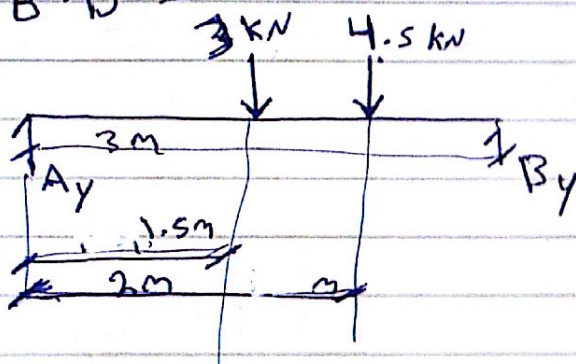 3 kN 4.5 kN
3m
Ay By
1.5m
2m m